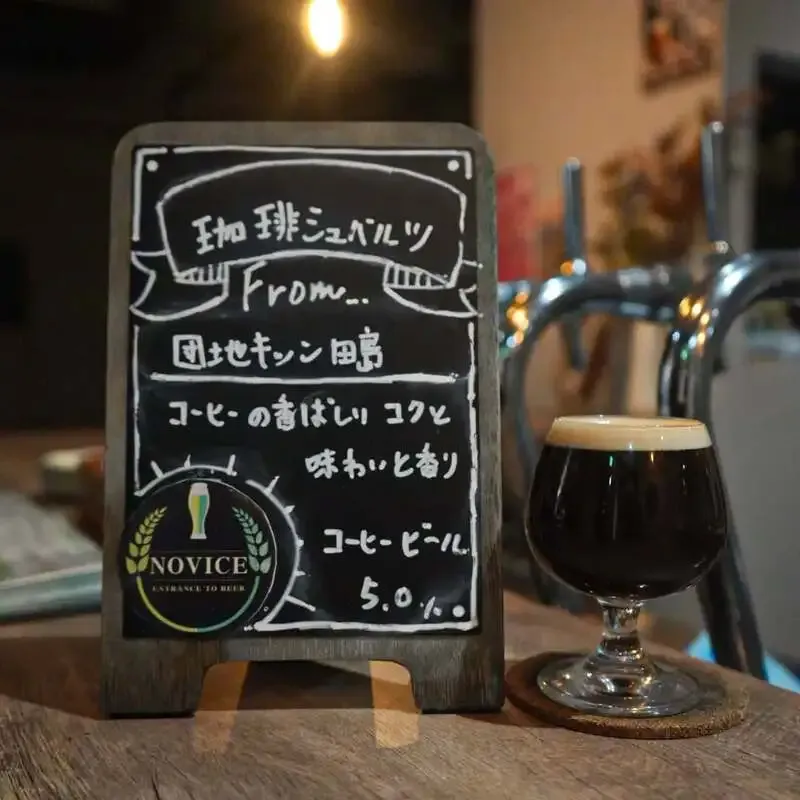 珈琲シュベルツ
From...
団地キッソン田島
コーヒーの香ばしい コクと
味わいと香り
コーヒービール
5.0%
NOVICE
ENTRANCE TO BEER